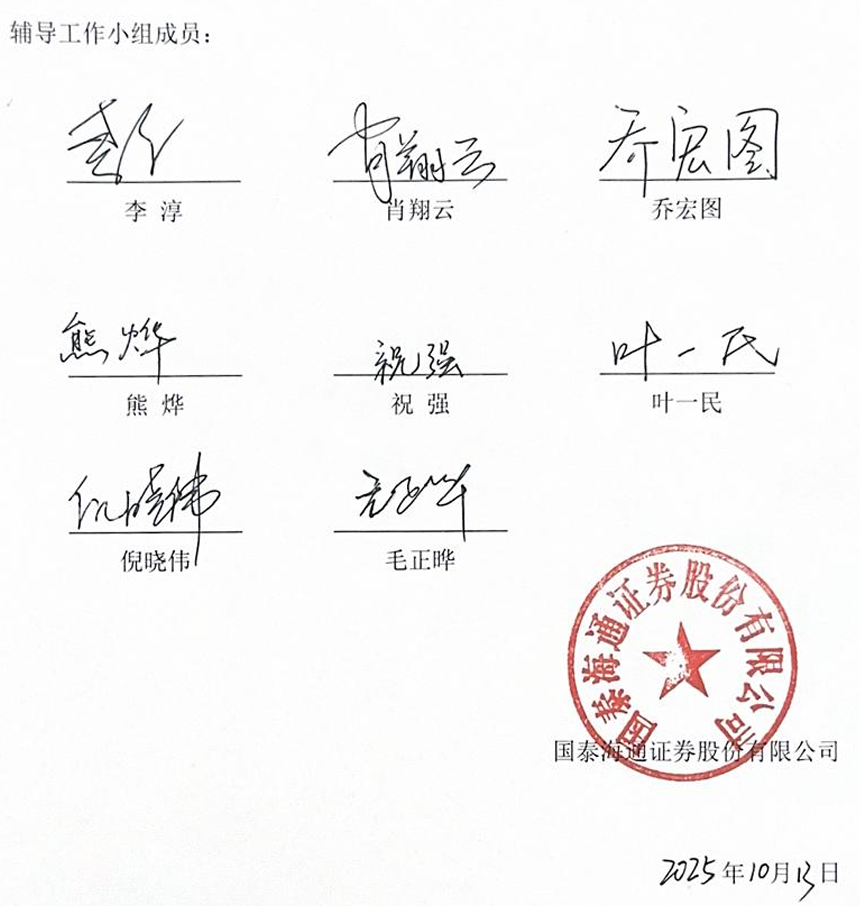 辅导工作小组成员：
李淳 肖翔云 乔宏图
李 淳 肖翔云 乔宏图
熊烨 祝强 叶一民
熊 烨 祝 强 叶一民
倪晓伟 毛正晔
倪晓伟 毛正晔
国泰海通证券股份有限公司
国泰海通证券股份有限公司
2025年10月13日